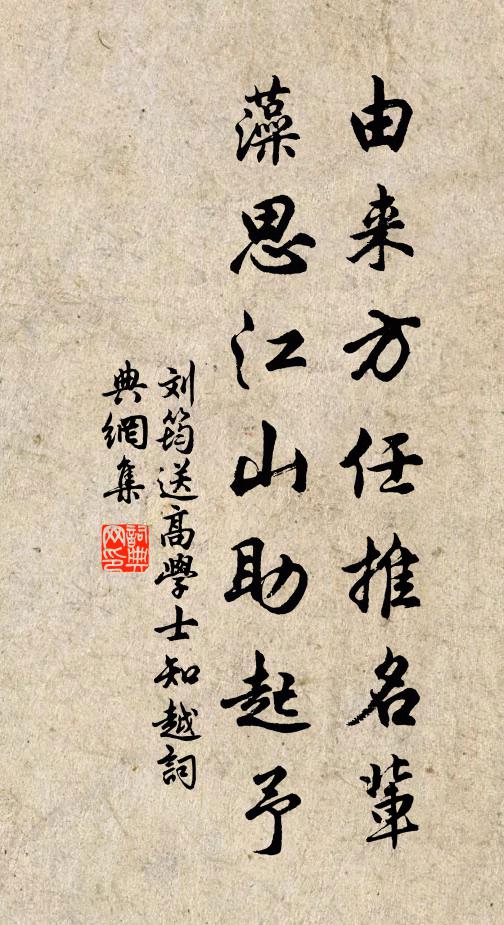 由来方任推名輩
藻思江山助起予
刘筠送高學士知越詞
典網集
詞典
网印